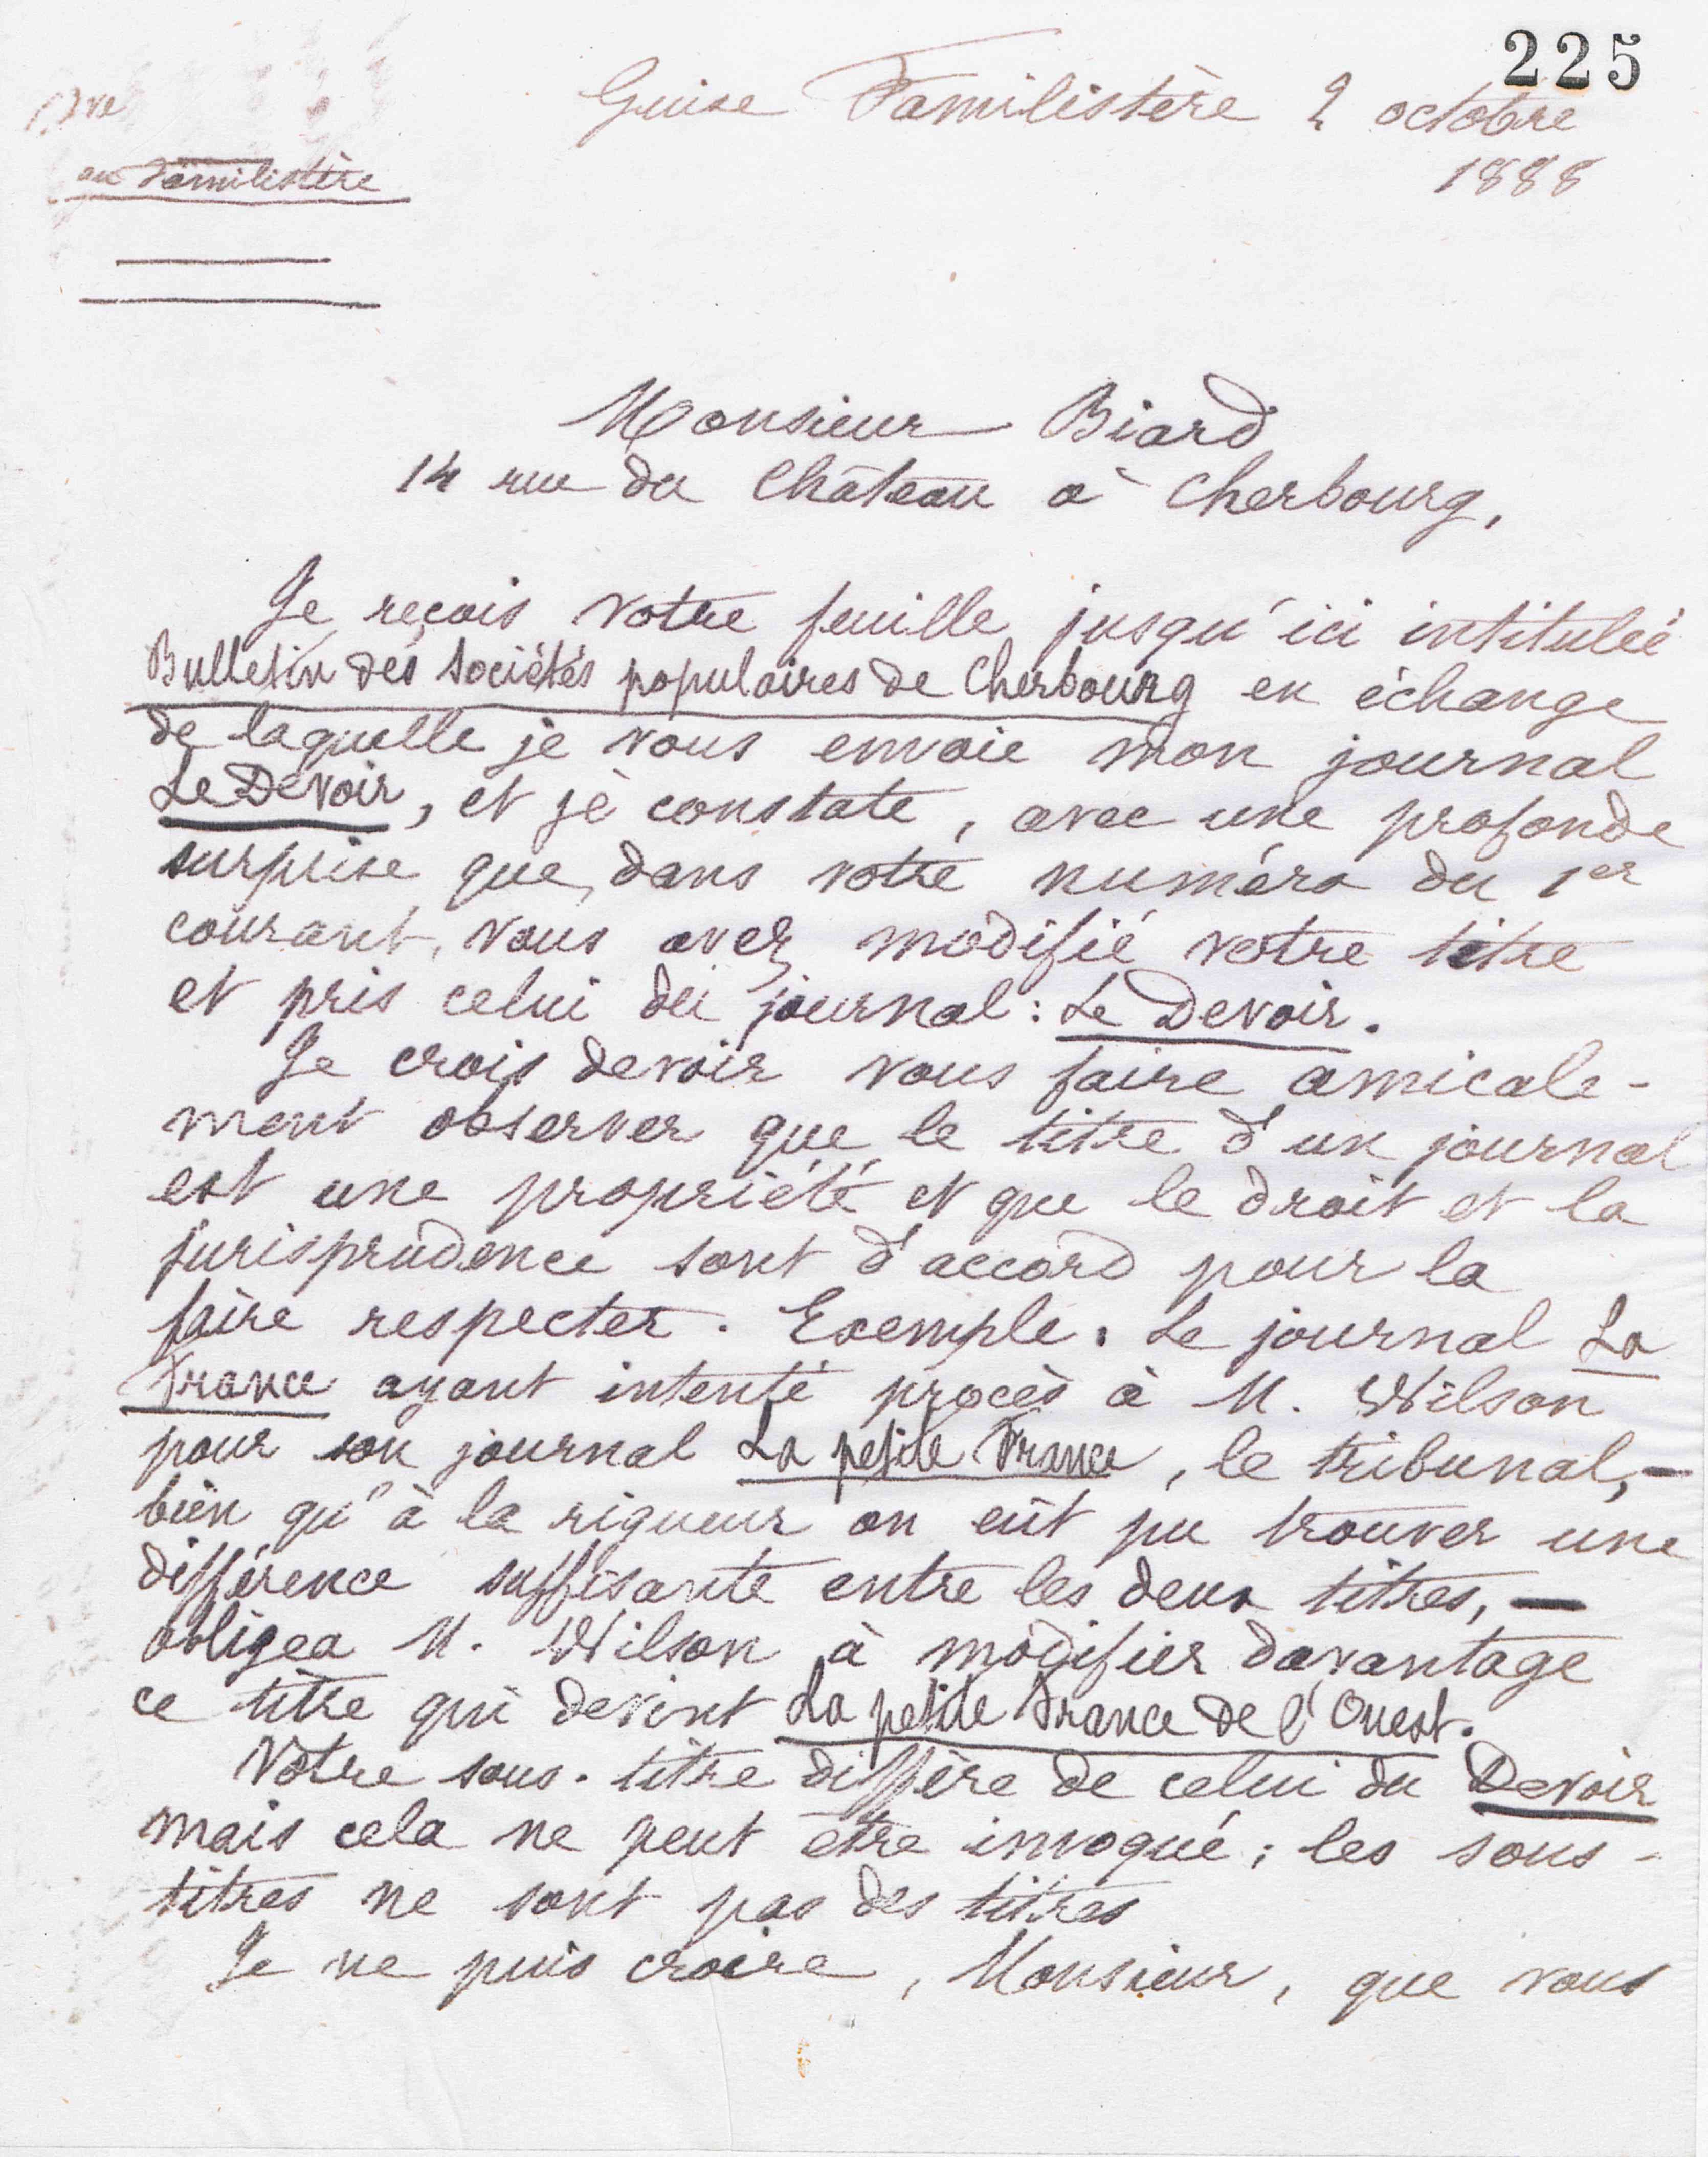 225
Guise Familistère 2 octobre
1888
au Familistère
Monsieur Biard
14 rue du Château à Cherbourg,
Je reçois votre feuille jusqu'ici intitulée
Bulletin des Sociétés populaires de Cherbourg en échange
de laquelle je vous envoie mon journal
Le Devoir, et je constate, avec une profonde
surprise que, dans votre numéro du 1er
courant, vous avez modifié votre titre
et pris celui du journal : Le Devoir.
Je crois devoir vous faire amicale-
ment observer que le titre d'un journal
est une propriété et que le droit et la
jurisprudence sont d'accord pour la
faire respecter. Exemple : Le journal La
France ayant intenté procès à M. Wilson
pour son journal La petite France, le tribunal, -
bien qu'à la rigueur on eût pu trouver une
différence suffisante entre les deux titres, -
obligea M. Wilson à modifier davantage
ce titre qui devint La petite France de l'Ouest.
Votre sous-titre diffère de celui du Devoir
mais cela ne peut être invoqué ; les sous-
titres ne sont pas des titres
Je ne puis croire, Monsieur, que vous